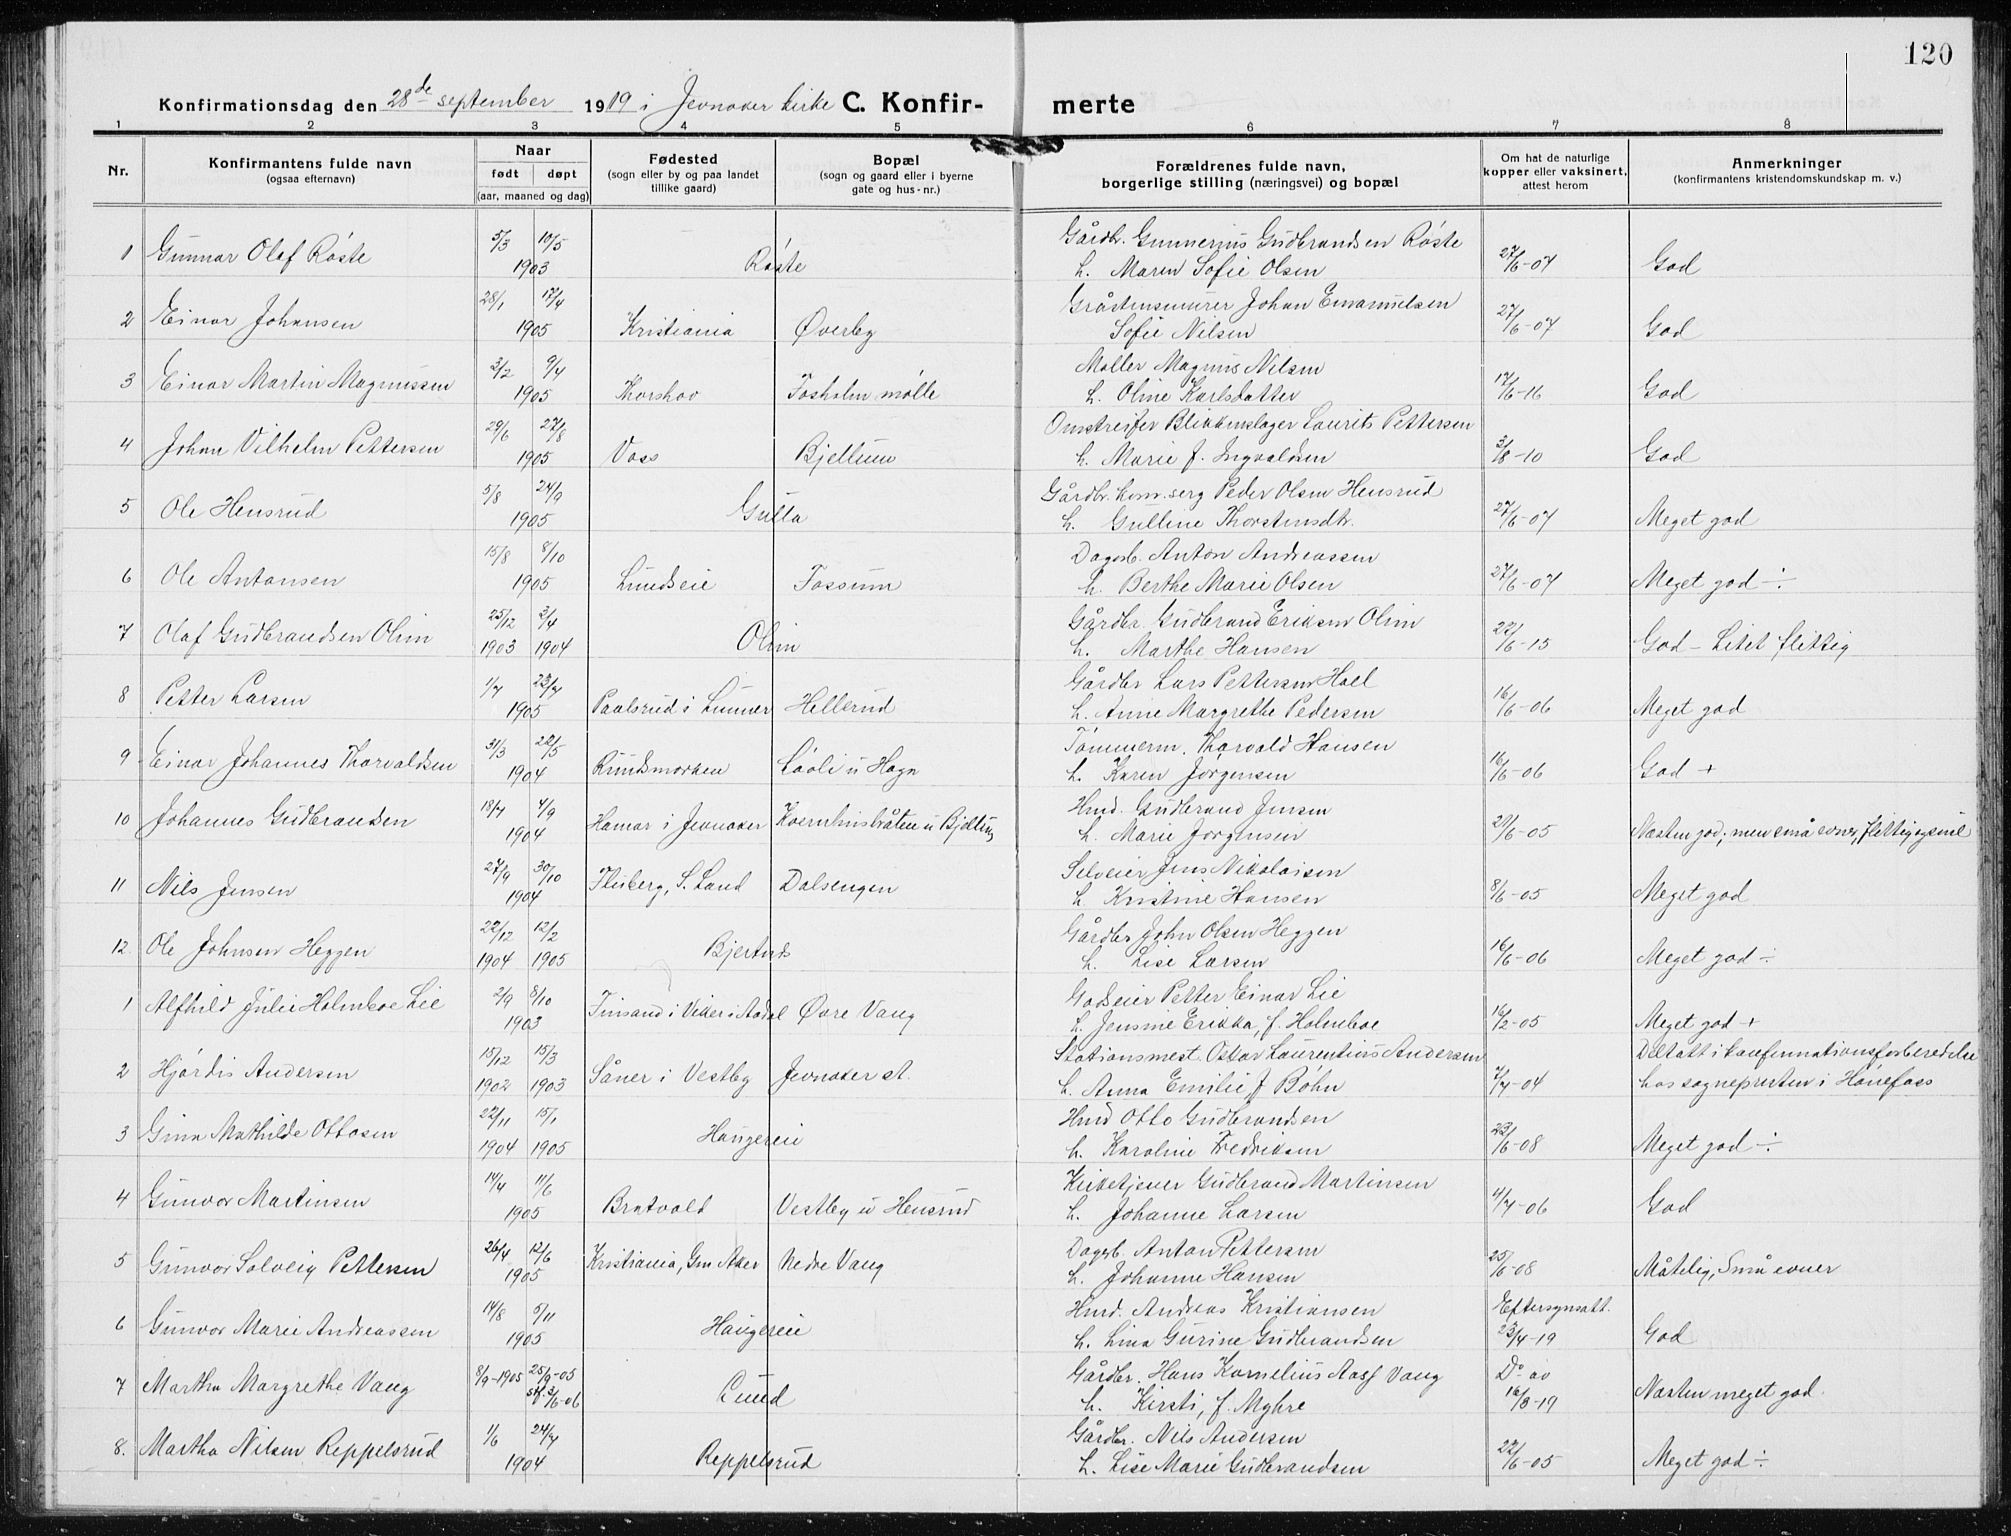 120
Konfirmationsdag den 28de september 1919 i Jevnaker kirke C. Konfir- merte
1 2 3 4 5 6 7 8
Nr. Konfirmantens fulde navn (ogsaa efternavn) Naar født døpt (aar, maaned og dag) Fødested (sogn eller by og paa landet tillike gaard) Bopæl (sogn og gaard eller i byerne gate og hus-nr.) Forældrenes fulde navn, borgerlige stilling (næringsvei) og bopæl Om hat de naturlige kopper eller vaksinert, attest herom Anmerkninger (konfirmantens kristendomskundskap m. v.)
5/3 10/5 Gårdbr. Gunnerius Gudbrandsen Røste
1 Gunnar Olaf Røste 1903 Røste h. Maren Sofie Olsen 27/6-07 God
28/1 17/4 Gråstensmurer Johan Emanuelsen
2 Einar Johansen 1905 Kristiania Øverby Sofie Nilsen 27/6-07 God
3/2 9/4 Møller Magnus Nilsen
3 Einar Martin Magnussen 1905 Thorshov Fosholm mølle h. Oline Karlsdatter 17/6-16 God
29/6 27/8 Omstreifer Blikkenslager Laurits Pettersen
4 Johan Vilhelm Pettersen 1905 Voss Bjellum h. Marie f. Ingvaldsen 3/8-10 God
5/8 24/9 Gårdbr. kom.serg Peder Olsen Hensrud
5 Ole Hensrud 1905 Gulla h. Gulline Thorstensdtr. 27/6-07 Meget god
15/8 8/10 Dagarb. Anton Andreassen
6 Ole Antonsen 1905 Lundseie Fossum h. Berthe Marie Olsen 27/6-07 Meget god ÷
25/12 3/4 Gårdbr. Gudbrand Eriksen Olim
7 Olaf Gudbrandsen Olim 1903 1904 Olim h. Marthe Hansen 22/6-15 God - Litet flittig
1/7 23/7 Gårdbr Lars Pettersen Hoel
8 Petter Larsen 1905 Paalsrud i Lunner Hellerud h. Anne Margrethe Pedersen 16/6-06 Meget god
31/3 22/5 Tømmerm. Thorvald Hansen
9 Einar Johannes Thorvaldsen 1904 Rundsmorken Låoli u Hagn h. Karen Jørgensen 16/6-06 God +
18/7 4/9 Hmd. Gudbrand Jensen
10 Johannes Gudbrandsen 1904 Hamar i Jevnaker Kvernhusbråten u Bjellum h. Marie Jørgensen 21/6-05 Næsten god, men små evner, flittig og snil
27/9 30/10 Selveier Jens Nikolaisen
11 Nils Jensen 1904 Fluberg, S. Land Dalsengen h. Kristine Hansen 8/6-05 Meget god
22/12 12/2 Gårdbr John Olsen Heggen
12. Ole Johnsen Heggen 1904 1905 Bjertnes h. Lise Larsen 16/6-06 Meget god ÷
2/9 8/10 Godseier Petter Einar Lie
1 Alfhild Julie Holmboe Lie 1903 Finsand i Viker i Aadal Øvre Vang h. Jensine Erikka, f. Holmboe 16/2-05 Meget god +
15/12 15/3 Stationsmest. Oskar Laurentius Andersen Deltatt i konfirmationsforberedelse
2 Hjørdis Andersen 1902 1903 Såner i Vestby Jevnaker st. h. Anna Emilie f Bøhn 7/7-04 hos sognepresten i Hønefoss
22/11 15/1 Hmd Otto Gudbrandsen
3 Gina Mathilde Ottosen 1904 1905 Haugereie h. Karoline Fredriksen 23/6-08 Meget god ÷
14/4 11/6 Kirketjener Gudbrand Martinsen
4 Gunvor Martinsen 1905 Bratvold Vestby u Hensrud h. Johanne Larsen 4/7-06 God
26/4 12/6 Dagarb. Anton Pettersen
5 Gunvor Solveig Pettersen 1905 Kristiania, Gm Aker Nedre Vang h. Johanne Hansen 25/6-08 Måtelig, Små evner
14/8 5/11 Hmd. Andreas Kristiansen Eftersynsatt.
6 Gunvor Marie Andreassen 1905 Haugereie h. Lina Gurine Gudbrandsen 23/4-19 God
8/9-1905 25/9-05 Gårdbr. Hans Kornelius Aass Vang Do av
7 Martha Margrethe Vang stf. 3/6-06 Lund h. Kirsti, f. Myhre 16/3-19 Næsten meget god.
1/6 24/7 Gårdbr. Nils Andersen
8. Martha Nilsen Reppelsrud 1904 Reppelsrud h. Lise Marie Gudbrandsen 22/6-05 Meget god ÷